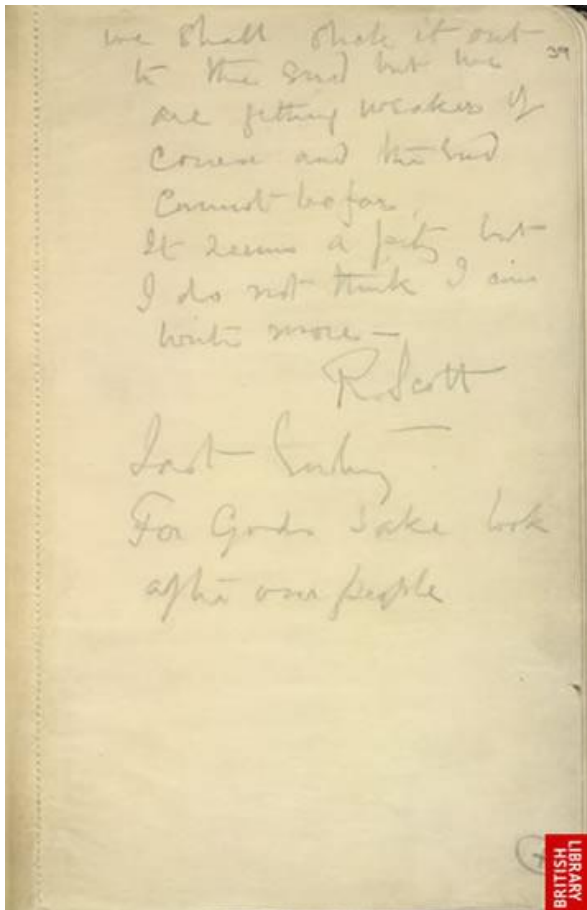 we shall stick it out
39
to the end but we
are getting weaker of
course and the end
cannot be far.
It seems a pity but
I do not think I can
write more —
R. Scott
Last Entry
For Gods sake look
after our people
BRITISH
LIBRARY